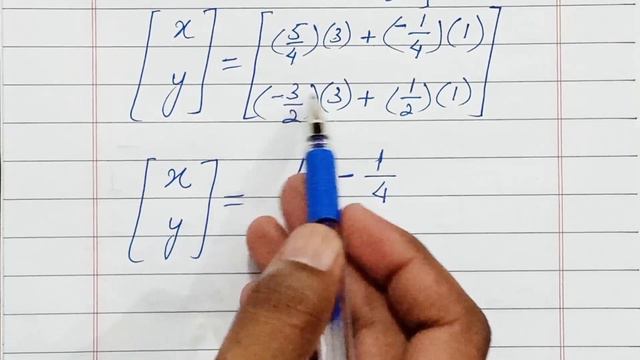 [x y] = [(5/4)(3) + (-1/4)(1) (-3/2)(3) + (1/2)(1)]
[x y] = - 1/4